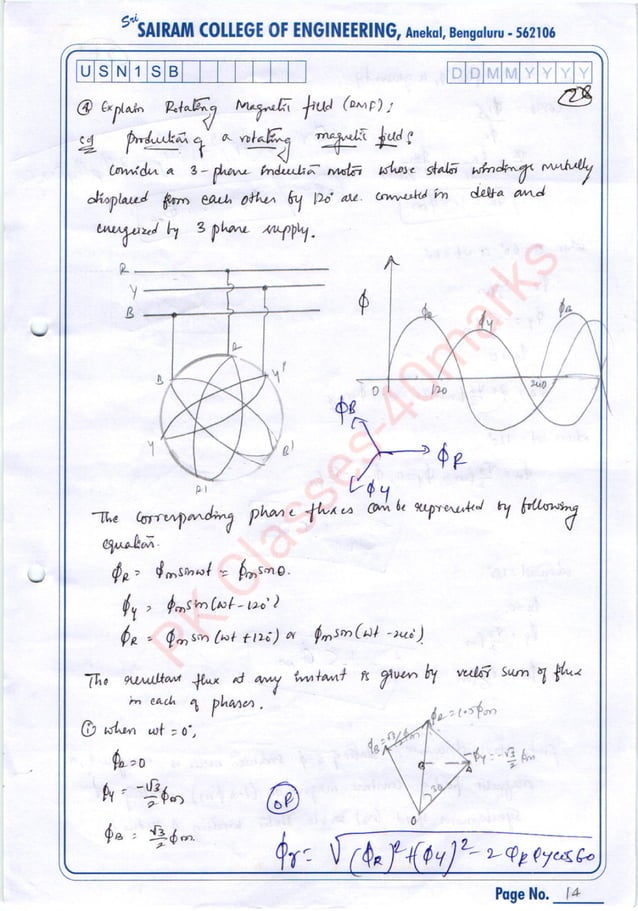 Sri
SAIRAM COLLEGE OF ENGINEERING, Anekal, Bengaluru - 562106
U S N 1 S B
D D M M Y Y Y Y
28
④ Explain Rotating Magnetic field (RMF);
production of a rotating magnetic field:
Consider a 3-phase induction motor whose stator windings mutually
displaced from each other by 120° are connected in delta and
energized by 3 phase supply.
R
Y
B
R
B
Y'
Y
B'
R'
ϕ
ϕR
ϕy
ϕB
0
120
240
ϕB
ϕR
ϕY
PK Classes-40marks
The corresponding phase fluxes can be represented by following
equation.
ϕR = ϕm sinωt = ϕm sinθ.
ϕy = ϕm sin(ωt - 120°)
ϕR = ϕm sin(ωt + 120°) or ϕm sin(ωt - 240°)
The resultant flux at any instant is given by vector sum of flux
in each of phases.
① when ωt = 0°,
ϕR = 0
ϕy = -√3/2 ϕm
ϕB = √3/2 ϕm.
ϕR = 1.5 ϕm
ϕB = √3/2 ϕm
-ϕy = -√3/2 ϕm
B
A
30
O
OR
ϕr = √(ϕR)² + (ϕy)² - 2 ϕR ϕy cos 60
Page No. 14